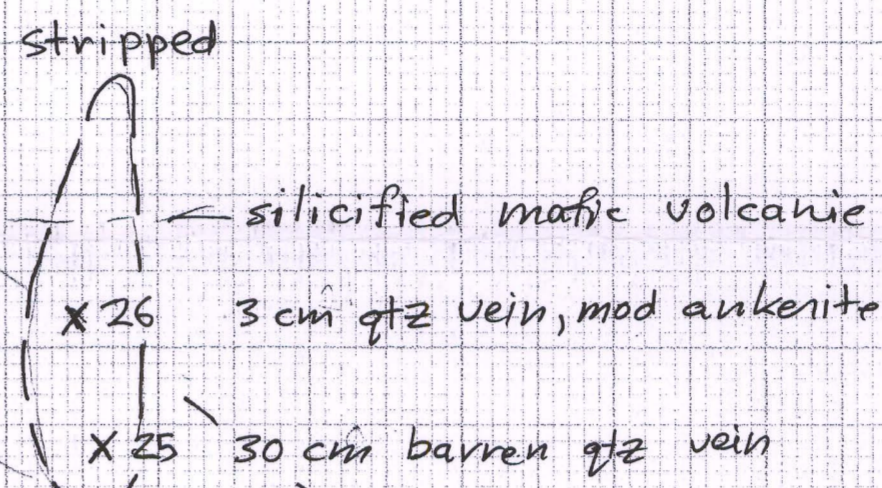 stripped
silicified mafic volcanic
X 26 3 cm qtz vein, mod ankerite
X 25 30 cm barren qtz vein